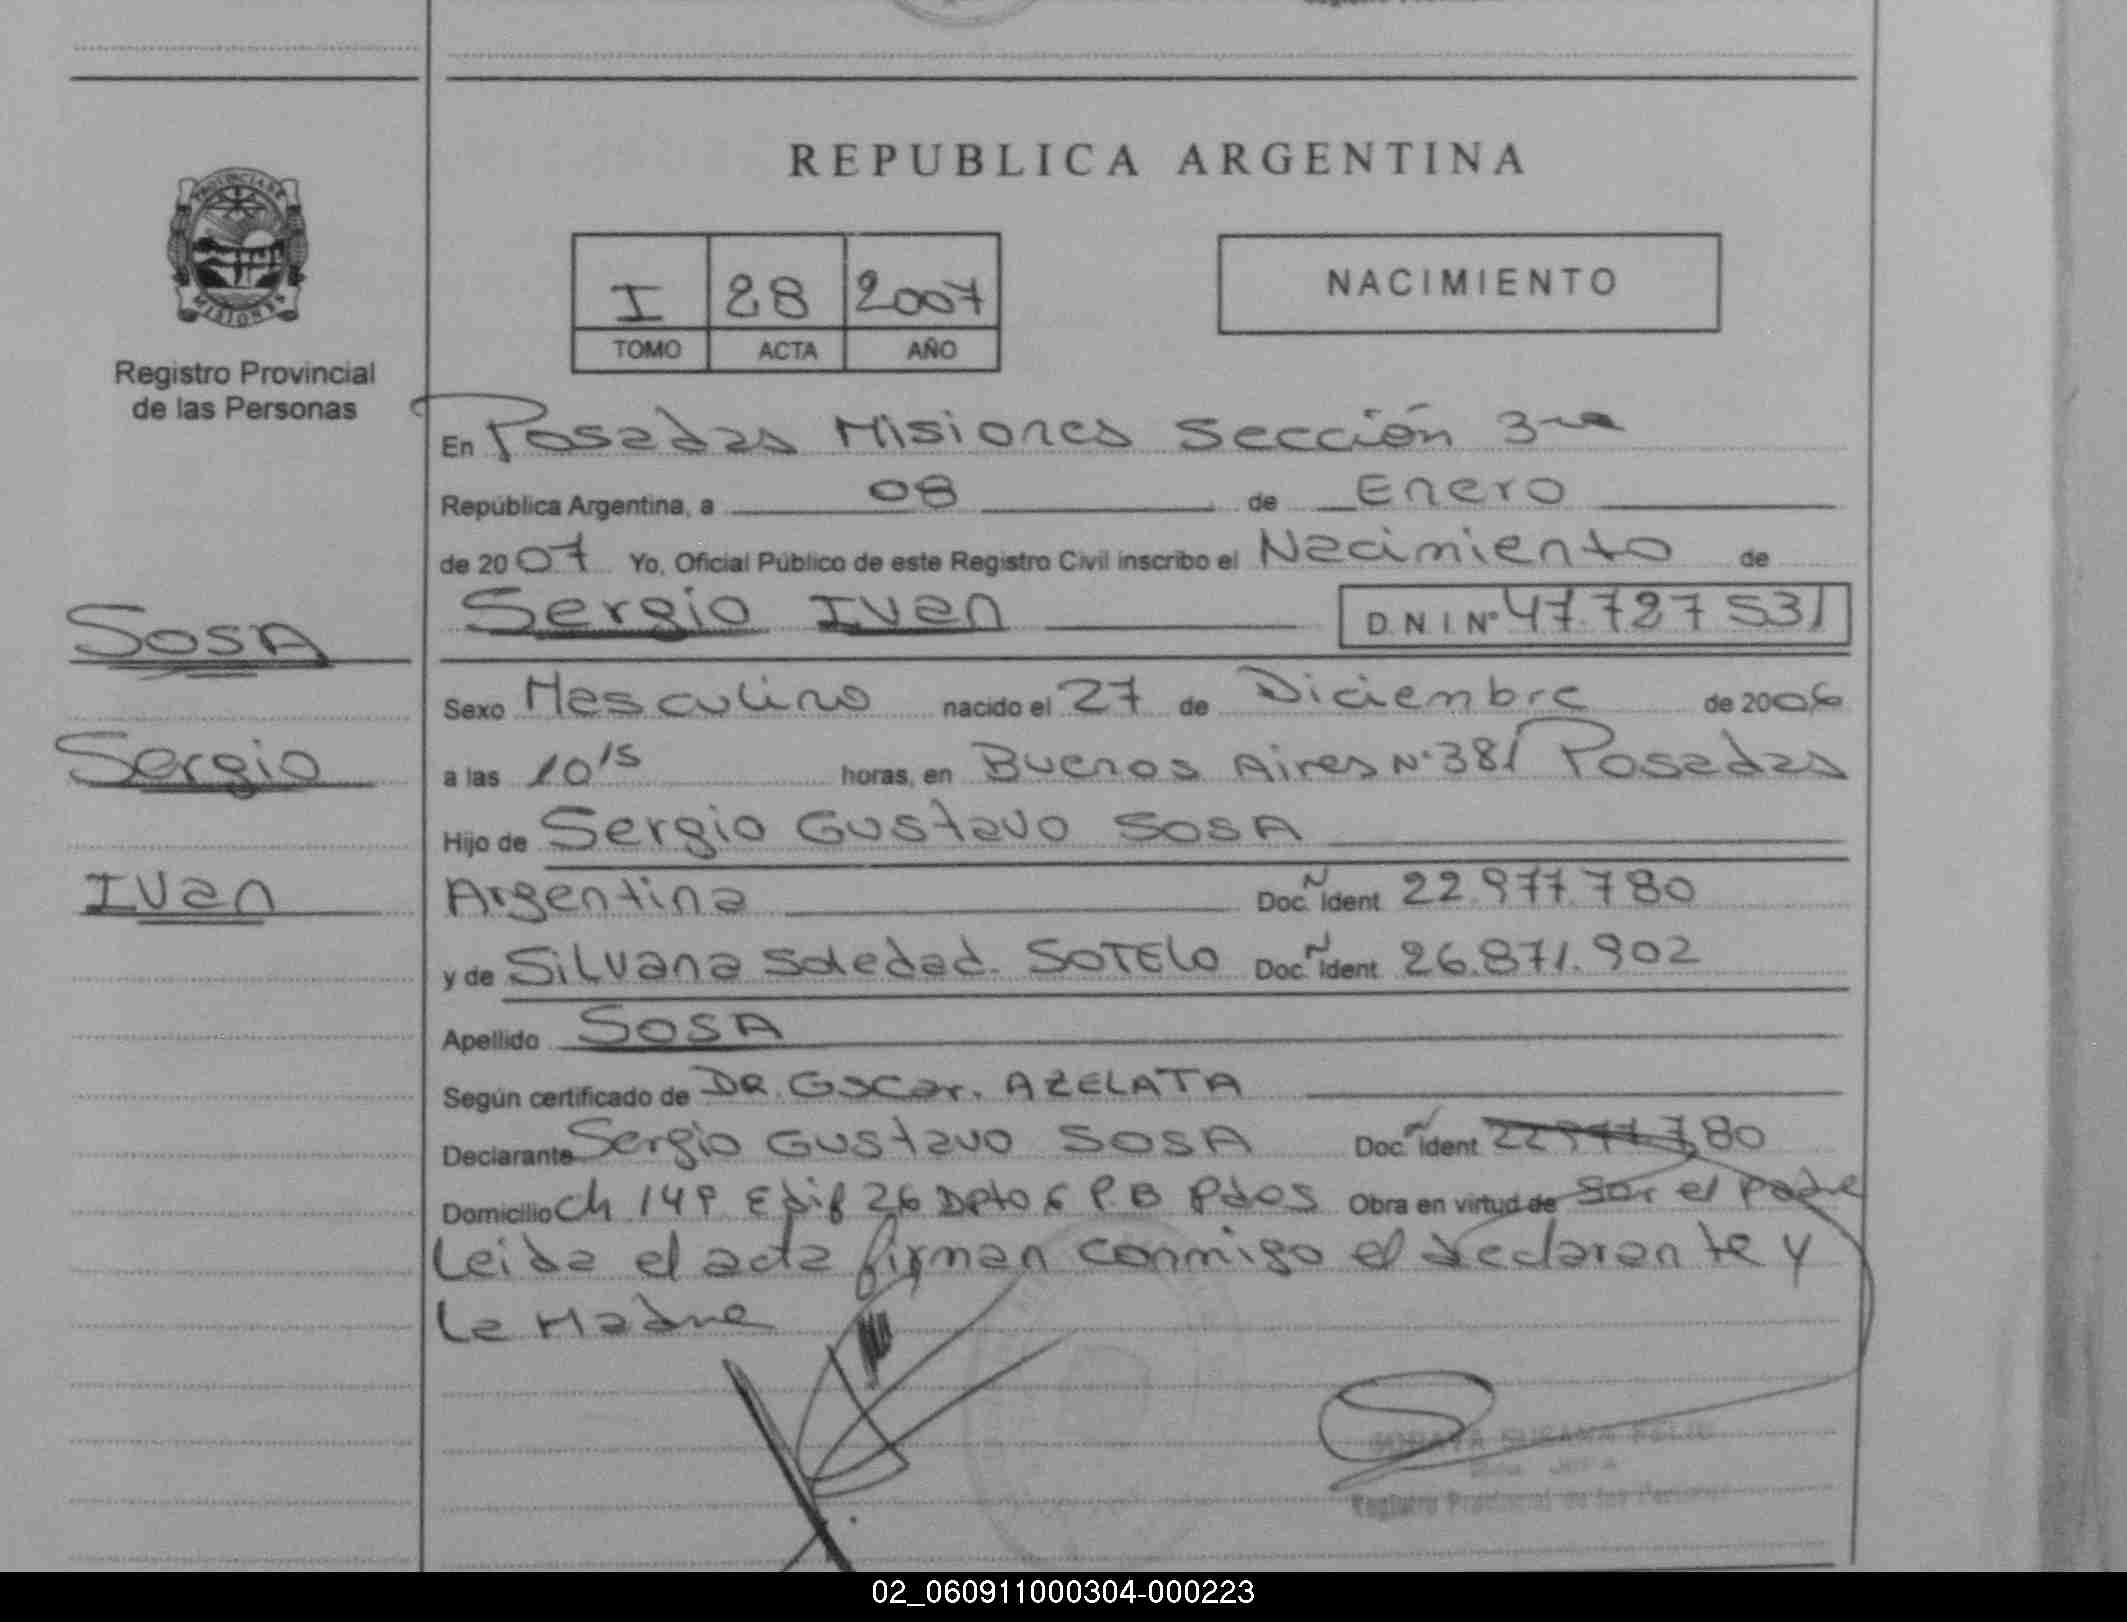 REPUBLICA ARGENTINA
PROVINCIA DE
MISIONES
Registro Provincial
de las Personas
I 28 2007
TOMO ACTA AÑO
NACIMIENTO
En Posadas Misiones Sección 3ra
República Argentina, a 08 de Enero
de 2007 Yo, Oficial Público de este Registro Civil inscribo el Nacimiento de
Sergio Ivan D N I Nº 47.727 531
SOSA
Sexo Masculino nacido el 27 de Diciembre de 2006
Sergio
a las 10 15 horas, en Buenos Aires Nº 381 Posadas
Hijo de Sergio Gustavo SOSA
Ivan
Argentina Doc. Ident 22.977.780
y de Silvana Soledad. SOTELO Doc. Ident 26.871.902
Apellido SOSA
Según certificado de DR. Oscar. AZELATA
Declarante Sergio Gustavo SOSA Doc. Ident 22977780
Domicilio Ch 149 Edif 26 Dpto 6 P.B Pdos Obra en virtud de Ser el Padre
Leida el acta firman conmigo el declarante y
la Madre
SUSANA FELIU
Registro Provincial de las Personas
02_060911000304-000223